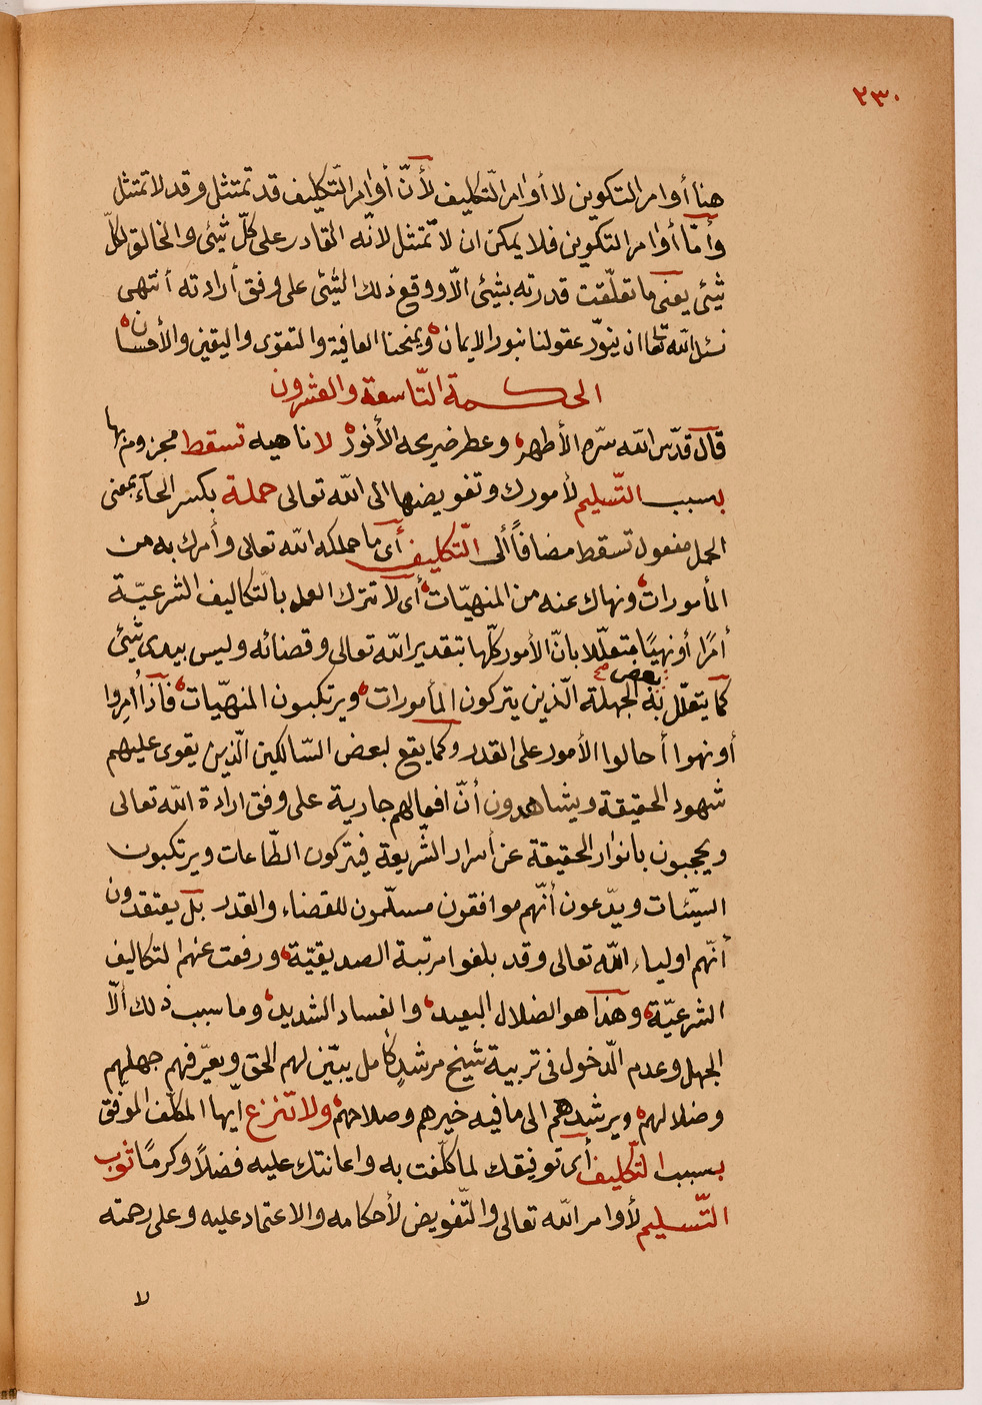 ٢٣٠
هنا أوامر التكوين لا أوامر التّكليف لأنّ أوامر التّكليف قد تمتثل وقد لا تمتثل
وأمّا أوامر التكوين فلا يمكن ان لا تمتثل لانّه القادر على كلّ شيئ والخالق لكلّ
شيئ يعنى ما تعلّقت قدرته بشيئ الّا ووقع ذلك الشيئ على وفق أرادته أنتهى
نسئل اللّه تعا ان ينوّر عقولنا بنور الايمان ويمنحنا العافية والتقوى واليقين والأحسان
الحكمة التّاسعة والعشرون
قال قدّس اللّه سرّه الأطهر وعطر ضريحه الأنور لا ناهيه تسقط مجزوم بها
بسبب التّسليم لأمورك وتفويضها الى اللّه تعالى حملة بكسر الحآء بمعنى
الحمل مفعول تسقط مضافاً ألى التّكليف أى ما حملكه اللّه تعالى وأمرك به من
المأمورات ونهاك عنه من المنهيّات أى لا تترك العمل بالتّكاليف الشرعيّة
أمرًا أو نهيًا متعلّلا بانّ الأمور كلّها بتقدير اللّه تعالى وقضائه وليس بيدى شيئ
كما يتعلّل به بعض صح الجهلة الّذين يتركون المأمورات ويرتكبون المنهيّات فأذا أمروا
أو نهوا أحالوا الأمور على القدر وكما يقع لبعض السّالكين الّذين يقوى عليهم
شهود الحقيقة ويشاهدون أنّ افعالهم جارية على وفق ارادة اللّه تعالى
ويحجبون بانوار الحقيقة عن أسرار الشّريعة فيتركون الطّاعات ويرتكبون
السيّئات ويدّعون أنّهم موافقون مسلّمون للقضاء والقدر بل يعتقدون
أنّهم اولياء اللّه تعالى وقد بلغوا مرتبة الصديقيّة ورفعت عنهم التكاليف
الشرعيّة وهذا هو الضلال البعيد والفساد الشديد وما سبب ذلك ألّا
الجهل وعدم الدّخول فى تربية شيخ مرشدٍ كامل يبيّن لهم الحق ويعرّفهم جهلهم
وضلالهم ويرشدهم الى ما فيه خيرهم وصلاحهم ولا تنزع ايّها المكلّف الموفّق
بسبب التّكليف أى توفيقك لما كلّفت به واعانتك عليه فضلًا وكرمًا ثوب
التّسليم لأوامر اللّه تعالى والتّفويض لأحكامه والاعتماد عليه وعلى رحمته
لا